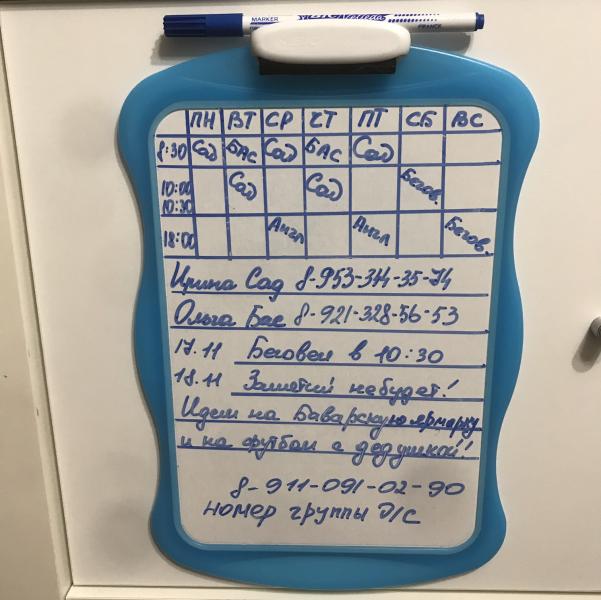 MARKER
FRANCE
ПН ВТ СР ЧТ ПТ СБ ВС
8:30 Сад БАС Сад БАС Сад
10:00 Сад Сад Бегов.
10:30
18:00 Англ Англ Бегов.
Ирина Сад 8-953-344-35-74
Ольга Бас 8-921-328-56-53
17.11 Беговел в 10:30
18.11 Занятий не будет!
Идем на Баварскую ярмарку
и на футбол с дедушкой!!
8-911-091-02-90
номер группы Д/С